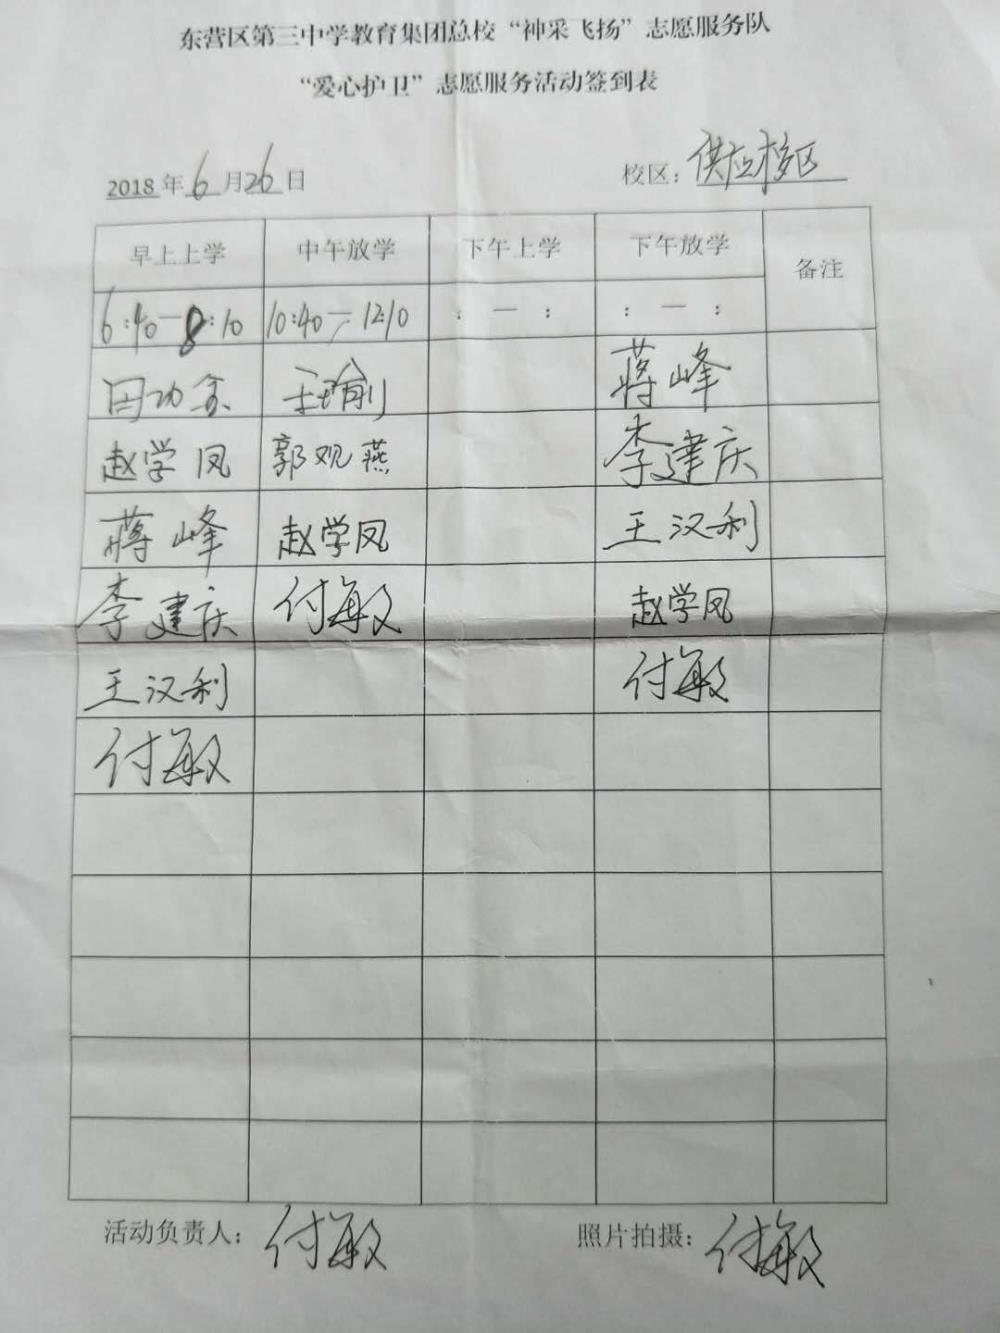 东营区第三中学教育集团总校“神采飞扬”志愿服务队
“爱心护卫”志愿服务活动签到表
2018年6月26日 校区：供应校区
早上上学 中午放学 下午上学 下午放学 备注
6:40—8:10 10:40—12:10 : — : : — :
田功 蒋峰
赵学凤 郭观燕 李建庆
蒋峰 赵学凤 王汉利
李建庆 付敏 赵学凤
王汉利 付敏
付敏
活动负责人：付敏 照片拍摄：付敏